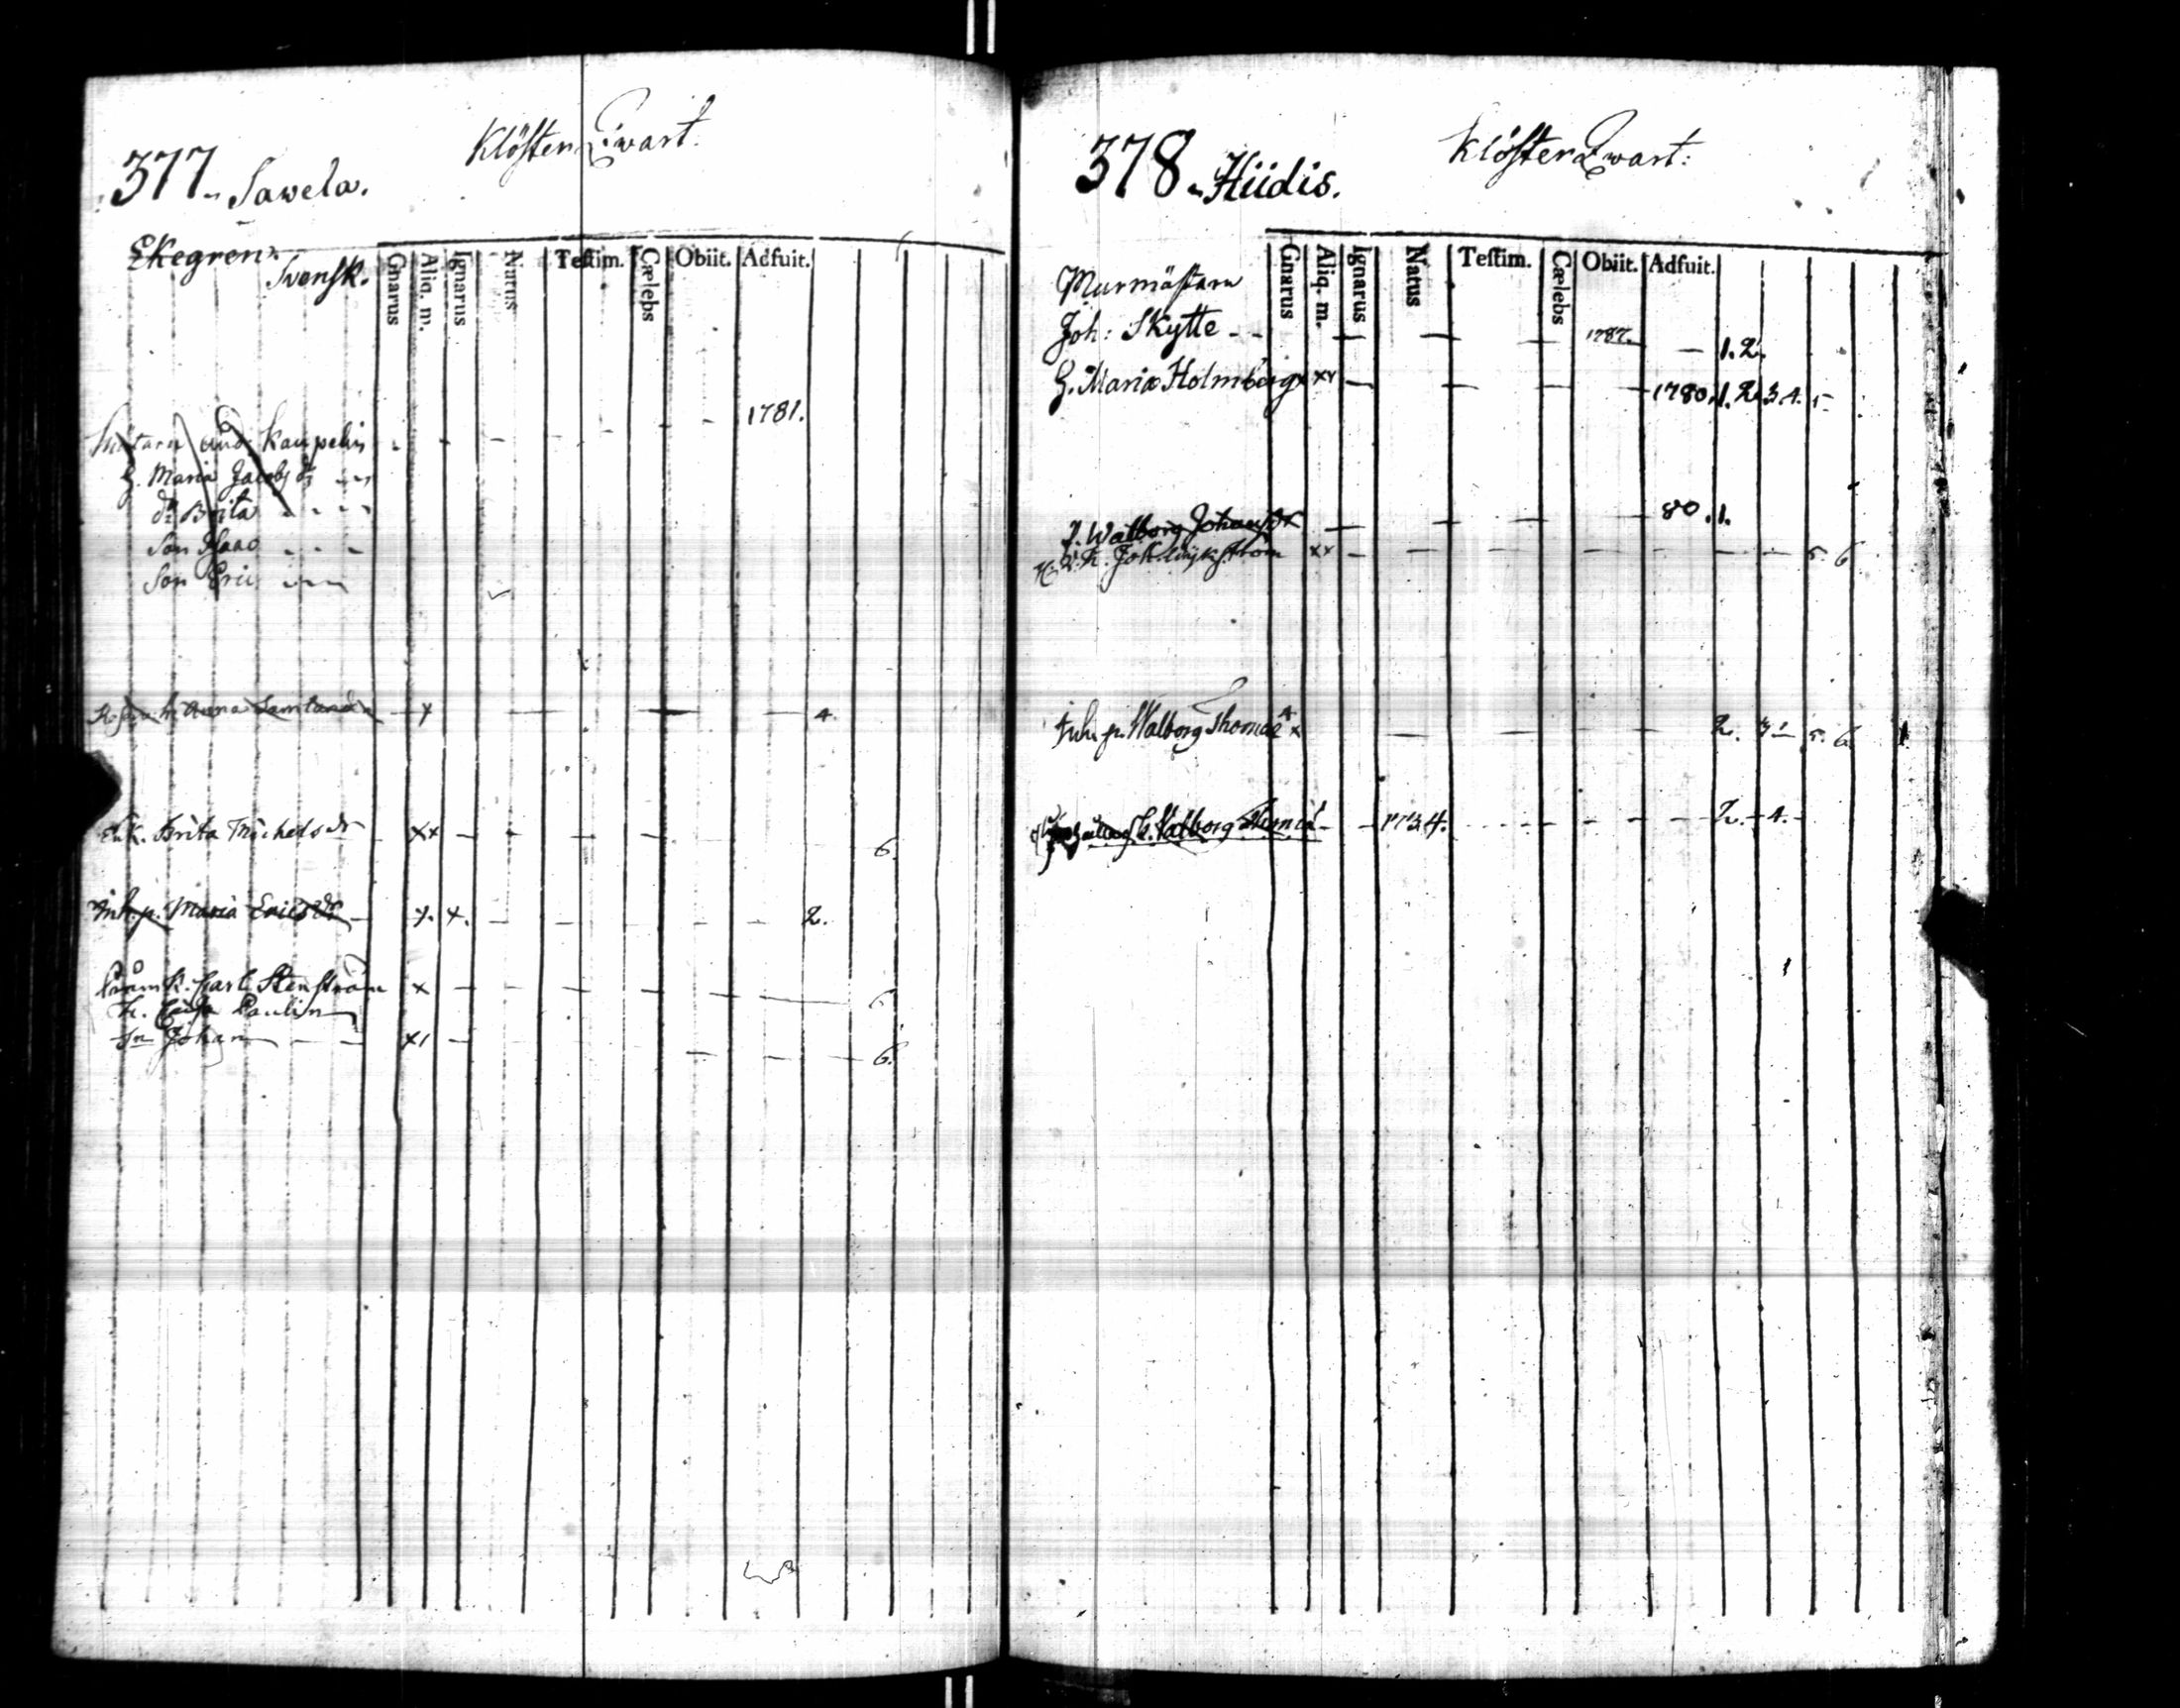 377. Sawela.
Klöster Qwart.
Ekegren.
Svensk.
Gnarus Aliq. m. Ignarus Natus Testim. Cælebs Obiit. Adfuit.
Kaupelin 1781.
H. Maria Jacobs dr
dr Brita
Son Isaac
Son Eric
Anna x 4.
Enk. Brita Michels dr xx 6.
Inh. p. Maria Erics dr x. x. 2.
Carl Stenström x 6
H. Paulin
Sn Johan x1 6.
378. Hiidis.
Klöster Qwart:
Gnarus Aliq. m. Ignarus Natus Testim. Cælebs Obiit. Adfuit.
Murmästaren
Joh: Skytte 1787. 1. 2.
H. Maria Holmberg xx 1780. 1. 2. 3 4. 5
P. Walborg Johansdr 80. 1.
xx 5. 6
Inh. p. Walborg Thomæ x 2. 3 5. 6
Walborg 1734. 2. 4.